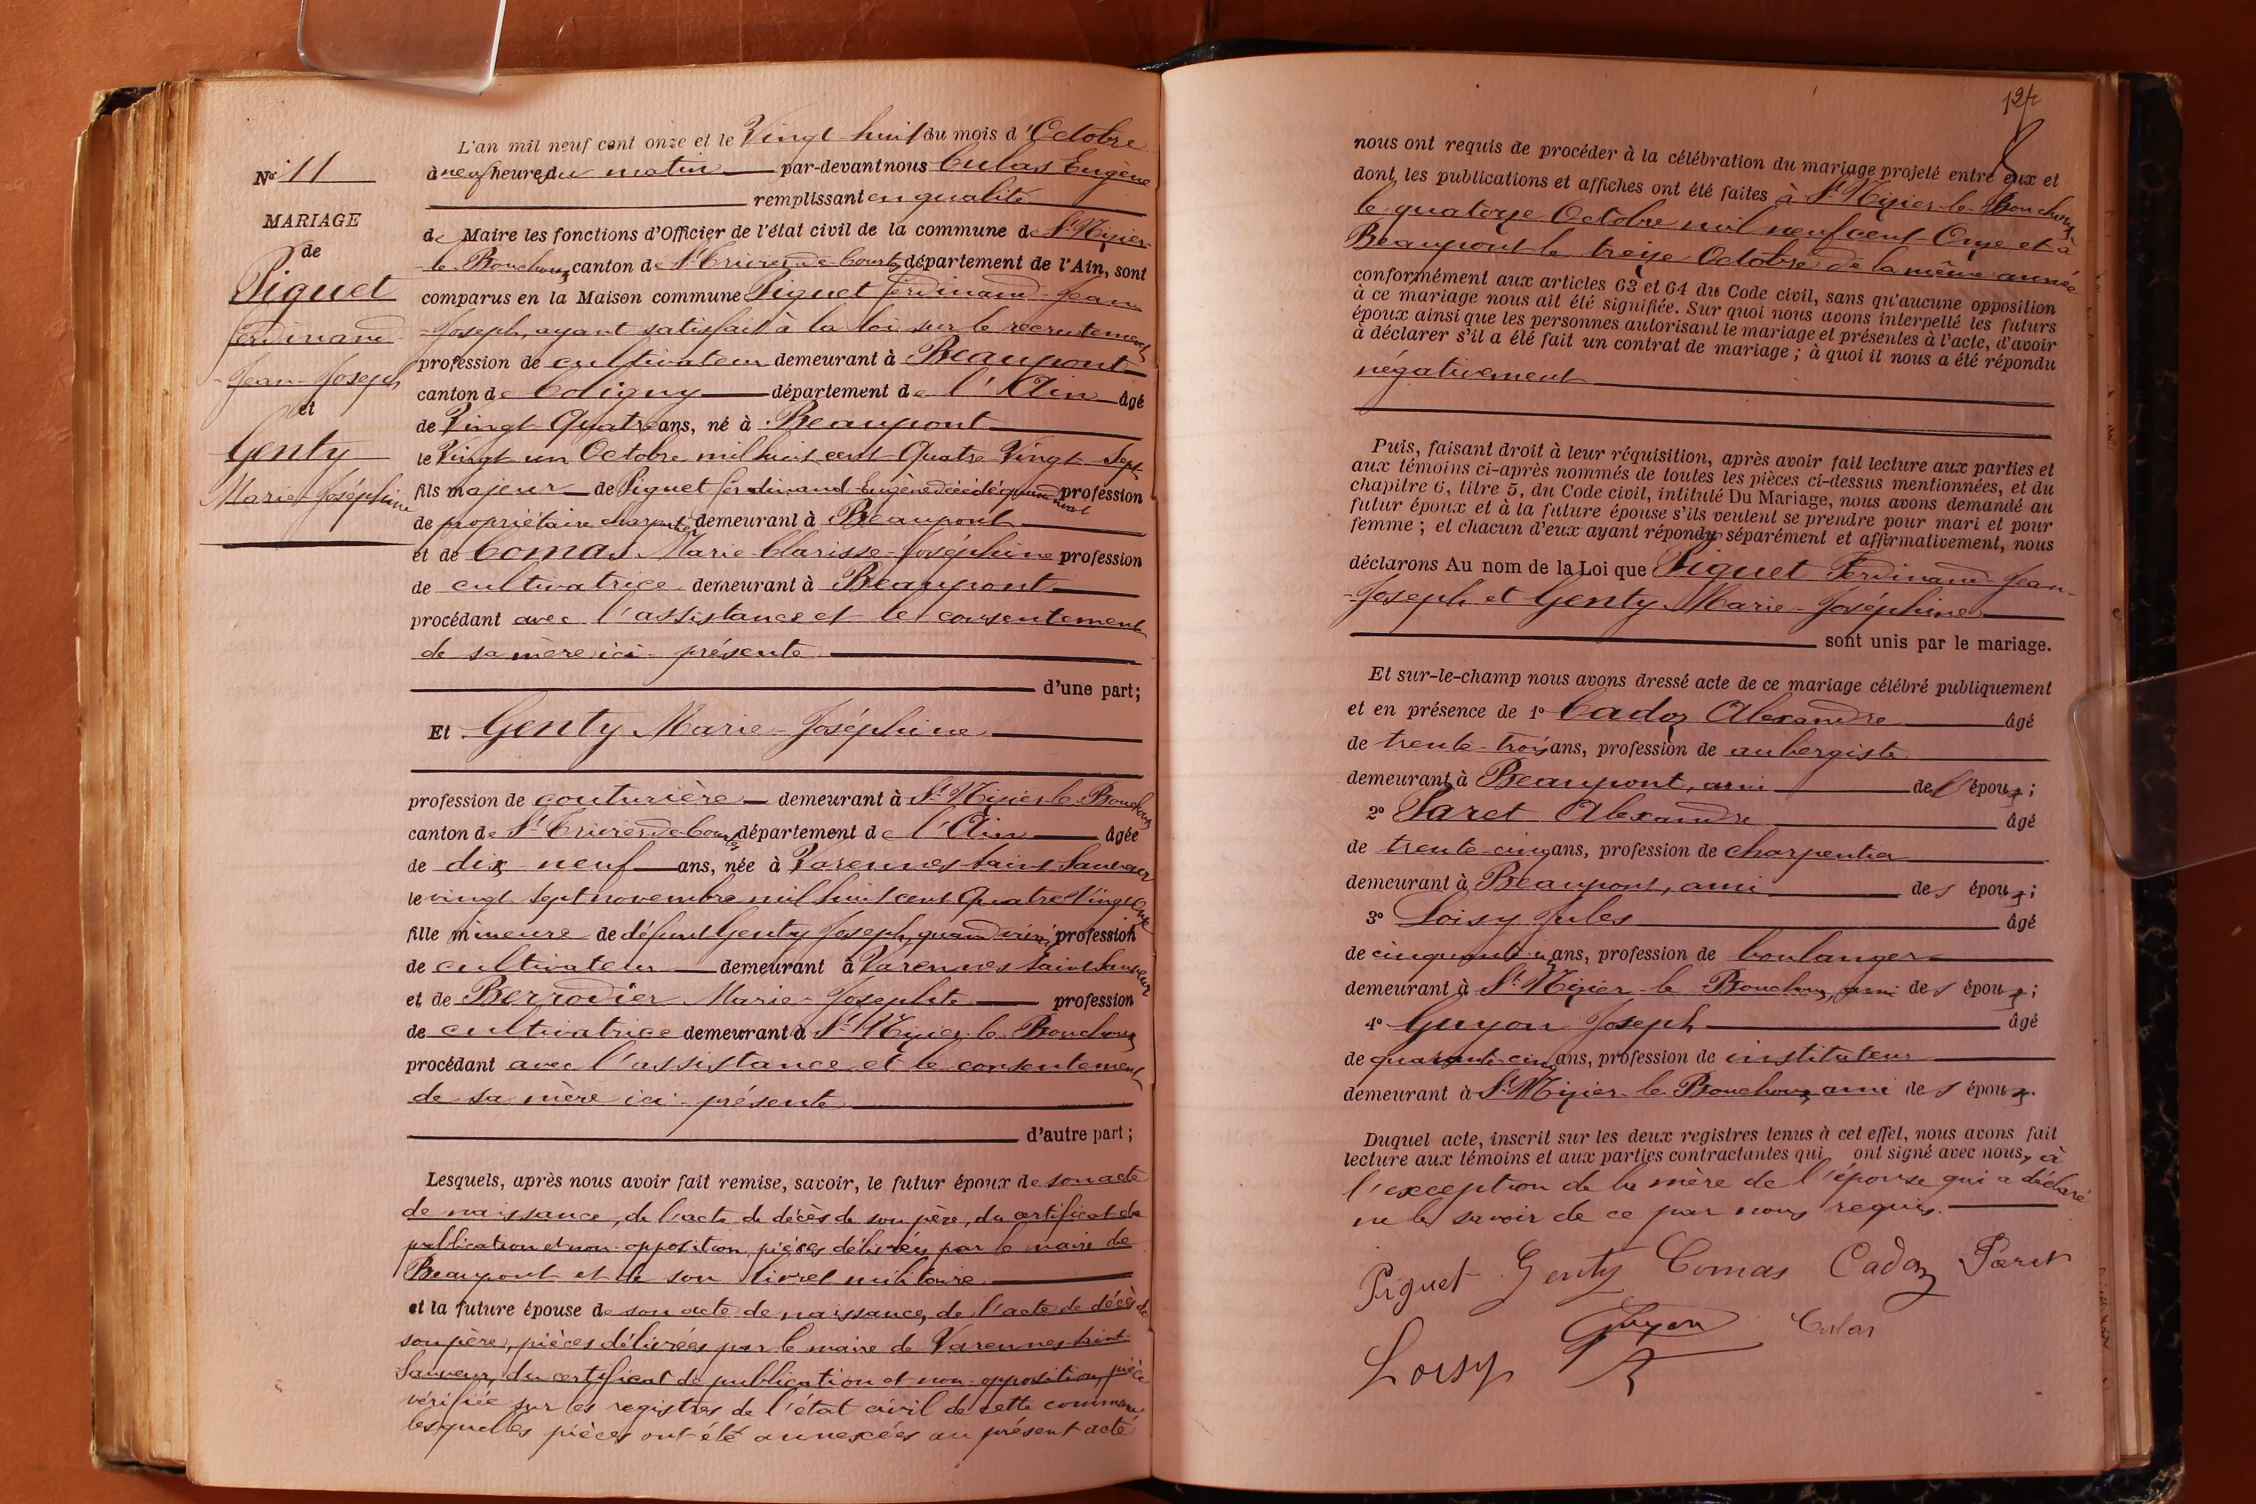 L'an mil neuf cent onze et le Vingt-huit du mois d'Octobre
à neuf heures du matin par-devant nous Culas Eugène
remplissant en qualité
de Maire les fonctions d'Officier de l'état civil de la commune de St Nizier-
le-Bouchoux canton de St Trivier-de-Courtes département de l'Ain, sont
comparus en la Maison commune Piguet Ferdinand-Jean-
Joseph, ayant satisfait à la loi sur le recrutement
profession de cultivateur demeurant à Beaupont
canton de Coligny département de l'Ain âgé
de Vingt-Quatre ans, né à Beaupont
le Vingt un Octobre mil huit cent Quatre Vingt-Sept
fils majeur de Piguet Ferdinand-Eugène décédé quand vivant profession
de propriétaire charpentier demeurant à Beaupont
et de Comas Marie-Clarisse-Joséphine profession
de cultivatrice demeurant à Beaupont
procédant avec l'assistance et le consentement
de sa mère ici présente
d'une part;
Et Genty Marie-Joséphine
profession de couturière demeurant à St Nizier-le-Bouchoux
canton de St Trivier-de-Courtes département de l'Ain âgée
de dix-neuf ans, née à Varennes-Saint-Sauveur
le vingt sept novembre mil huit cent Quatre Vingt onze
fille mineure de défunt Genty Joseph, quand vivait profession
de cultivateur demeurant à Varennes Saint Sauveur
et de Berrodier Marie-Josephte profession
de cultivatrice demeurant à St Nizier-le-Bouchoux
procédant avec l'assistance et le consentement
de sa mère ici présente
d'autre part;
Lesquels, après nous avoir fait remise, savoir, le futur époux de son acte
de naissance, de l'acte de décès de son père, du certificat de
publication et non-opposition, pièces délivrées par le maire de
Beaupont et de son livret militaire
et la future épouse de son acte de naissance, de l'acte de décès de
son père, pièces délivrées par le maire de Varennes-Saint-
Sauveur, du certificat de publication et non-opposition, pièce
vérifiée sur les registres de l'état civil de cette commune
lesquelles pièces ont été annexées au présent acte
No 11
MARIAGE
de
Piguet
Ferdinand
Jean-Joseph
et
Genty
Marie-Joséphine
124
nous ont requis de procéder à la célébration du mariage projeté entre eux et
dont les publications et affiches ont été faites à St Nizier-le-Bouchoux
le quatorze Octobre mil neuf cent Onze et à
Beaupont le treize Octobre de la même année
conformément aux articles 63 et 64 du Code civil, sans qu'aucune opposition
à ce mariage nous ait été signifiée. Sur quoi nous avons interpellé les futurs
époux ainsi que les personnes autorisant le mariage et présentes à l'acte, d'avoir
à déclarer s'il a été fait un contrat de mariage; à quoi il nous a été répondu
négativement
Puis, faisant droit à leur réquisition, après avoir fait lecture aux parties et
aux témoins ci-après nommés de toutes les pièces ci-dessus mentionnées, et du
chapitre 6, titre 5, du Code civil, intitulé Du Mariage, nous avons demandé au
futur époux et à la future épouse s'ils veulent se prendre pour mari et pour
femme; et chacun d'eux ayant répondu séparément et affirmativement, nous
déclarons Au nom de la Loi que Piguet Ferdinand-Jean-
-Joseph et Genty Marie-Joséphine
sont unis par le mariage.
Et sur-le-champ nous avons dressé acte de ce mariage célébré publiquement
et en présence de 1o Cadoz Alexandre âgé
de trente-trois ans, profession de aubergiste
demeurant à Beaupont, ami de l'époux;
2o Paret Alexandre âgé
de trente-cinq ans, profession de charpentier
demeurant à Beaupont, ami des époux;
3o Loisy Jules âgé
de cinquante ans, profession de boulanger
demeurant à St Nizier-le-Bouchoux, ami des époux;
4o Guyon Joseph âgé
de quarante-cinq ans, profession de instituteur
demeurant à St Nizier-le-Bouchoux ami des époux.
Duquel acte, inscrit sur les deux registres tenus à cet effet, nous avons fait
lecture aux témoins et aux parties contractantes qui ont signé avec nous, à
l'exception de la mère de l'épouse qui a déclaré
ne le savoir de ce par nous requis.
Piguet Genty Comas Cadoz Paret
Loisy Guyon Culas